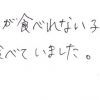 が食べれない子
べていました。